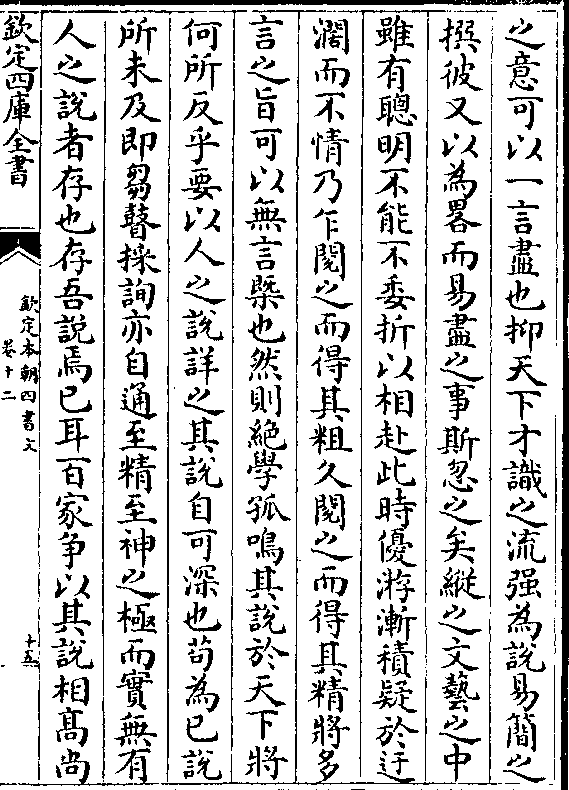 之意可以一言盡也抑天下才識之流强為說易簡之
撰彼又以為畧而易盡之事斯忽之矣縱之文藝之中
雖有聰明不能不委折以相赴此時優游漸積疑於迂
濶而不情乃乍閲之而得其粗久閲之而得其精將多
言之旨可以無言槩也然則絶學孤鳴其說於天下將
何所反乎要以人之說詳之其說自可深也苟為已說
所未及即芻瞽採詢亦自通至精至神之極而實無有
人之說者存也存吾說焉已耳百家争以其說相髙尚
欽定四庫全書
欽定本朝四書文
卷十二
十五